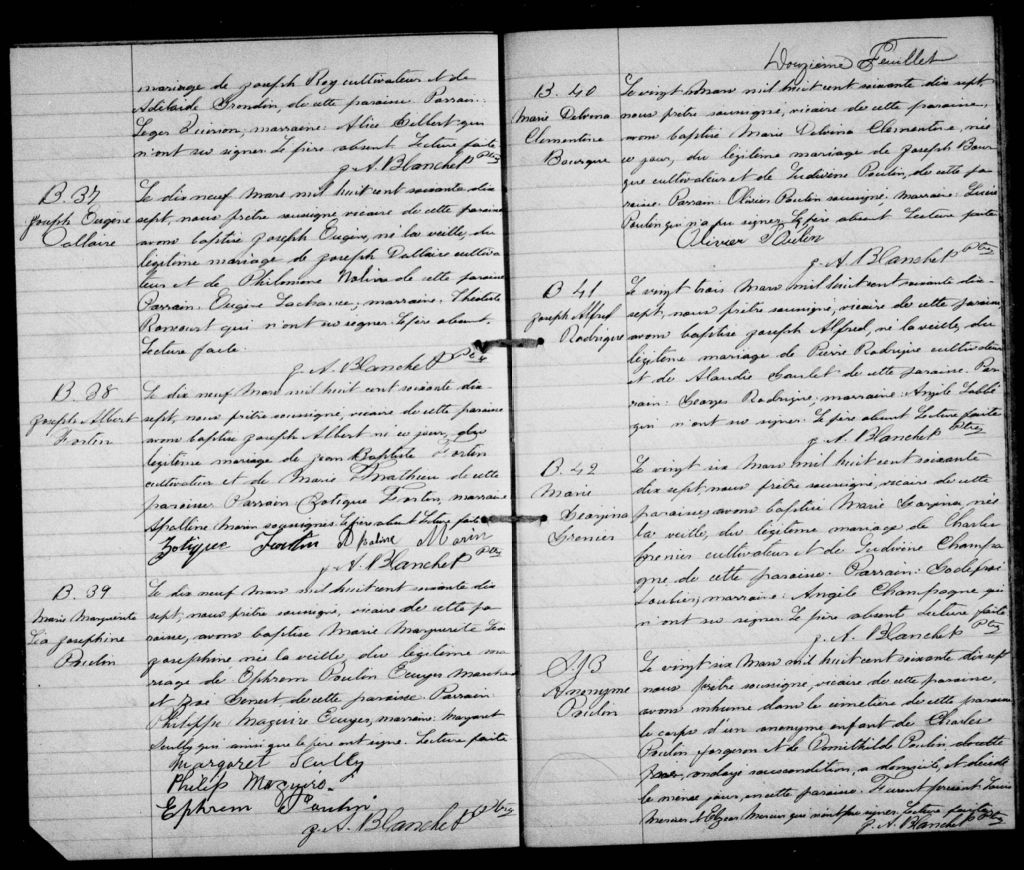 mariage de Joseph Roy cultivateur et de
Adélaide Grondin, de cette paroisse Parrain:
Leger Quirion; marraine: Alice Gilbert qui
n'ont su signer Le père absent Lecture faite
J. A. Blanchet Ptre
B. 37
Joseph Eugène
Dallaire
Le dix neuf Mars mil huit cent soixante dix
sept, nous prêtre soussigné vicaire de cette paroisse
avons baptisé Joseph Eugène, né la veille, du
légitime mariage de Joseph Dallaire cultiva-
teur et de Philomène Nolin de cette paroisse
Parrain. Eugène Lachance; marraine: Théotiste
Roncourt qui n'ont su signer. Le père absent.
Lecture faite.
J. A. Blanchet Ptre
B. 38
Joseph Albert
Fortin
Le dix neuf Mars mil huit cent soixante dix
sept, nous prêtre soussigné, vicaire de cette paroisse
avons baptisé Joseph Albert né ce jour, du
légitime mariage de Jean Baptiste Fortin
cultivateur et de Marie Mathieu de cette
paroisse Parrain Zotique Fortin, marraine
Apolline Marin soussignés. Le père absent Lecture faite
Zotique Fortin Apoline Marin
J. A. Blanchet Ptre
B. 39
Marie Marguerite
Léa Josephine
Poulin
Le dix neuf Mars mil huit cent soixante dix
sept, nous prêtre soussigné, vicaire de cette pa-
roisse, avons baptisé Marie Marguerite Léa
Josephine née la veille, du légitime ma-
riage de Ephrem Poulin Ecuyer Marchand
et de cette paroisse Parrain
Philippe Maguire Ecuyer, marraine Margaret
Scully qui ainsi que le père ont signé. Lecture faite
Margaret Scully
Philip Maguire
Ephrem Poulin
J. A. Blanchet Ptre
Douzième Feuillet
B. 40
Marie Delvina
Clementine
Bourque
Le vingt Mars mil huit cent soixante dix sept,
nous prêtre soussigné, vicaire de cette paroisse,
avons baptisé Marie Delvina Clementine, née
ce jour, du légitime mariage de Joseph Bour-
que cultivateur et de Ludivine Poulin, de cette pa-
roisse. Parrain: Olivier Poulin soussigné. Marraine: Lucie
Poulin qui n'a pu signer. Le père absent Lecture faite
Olivier Poulin
J. A. Blanchet Ptre
B. 41
Joseph Alfred
Rodrigue
Le vingt trois Mars mil huit cent soixante dix
sept, nous prêtre soussigné, vicaire de cette paroisse
avons baptisé Joseph Alfred, né la veille, du
légitime mariage de Pierre Rodrigue cultivateur
et de Goulet de cette paroisse. Par-
rain: Georges Rodrigue, marraine: Angèle Labbé
qui n'ont su signer. Le père absent Lecture faite
J. A. Blanchet Ptre
B. 42
Marie
Georgina
Grenier
Le vingt six Mars mil huit cent soixante
dix sept, nous prêtre soussigné, vicaire de cette
paroisse, avons baptisé Marie Georgina, née
la veille, du légitime mariage de Charles
Grenier cultivateur et de Ludivine Champa-
gne, de cette paroisse. Parrain: Godefroi
Loubier; marraine: Angèle Champagne qui
n'ont su signer. Le père absent Lecture faite
J. A. Blanchet Ptre
S. 13
Anonyme
Poulin
Le vingt six Mars mil huit cent soixante dix sept
nous prêtre soussigné, vicaire de cette paroisse,
avons inhumé dans le cimetière de cette paroisse
le corps d'un anonyme enfant de Charles
Poulin forgeron et de Domithilde Poulin, de cette
ondoyé sous condition, à domicile, et décédé
le même jour, en cette paroisse. Furent présent Louis
Mercier et Elzear Mercier qui n'ont pu signer Lecture faite
J. A. Blanchet Ptre